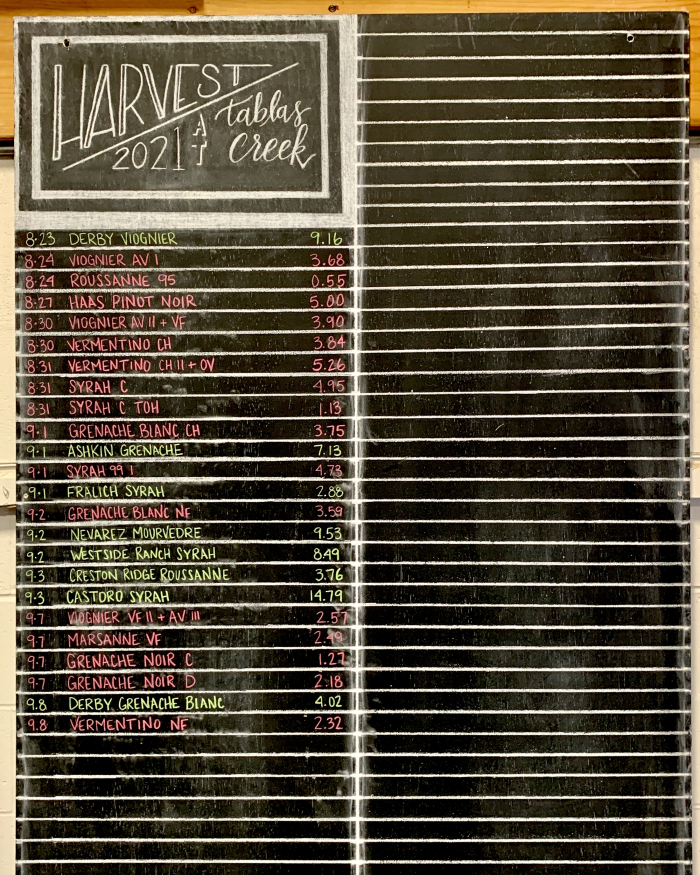 HARVEST
2021 AT tablas creek
8·23 DERBY VIOGNIER 9.16
8·24 VIOGNIER AV I 3.68
8·24 ROUSSANNE 95 0.55
8·27 HAAS PINOT NOIR 5.00
8·30 VIOGNIER AV II + VF 3.90
8·30 VERMENTINO CH 3.84
8·31 VERMENTINO CH II + OV 5.26
8·31 SYRAH C 4.95
8·31 SYRAH C TOH 1.13
9·1 GRENACHE BLANC CH 3.75
9·1 ASHKIN GRENACHE 7.13
9·1 SYRAH 99 I 4.73
9·1 FRALICH SYRAH 2.88
9·2 GRENACHE BLANC NF 3.59
9·2 NEVAREZ MOURVEDRE 9.53
9·2 WESTSIDE RANCH SYRAH 8.49
9·3 CRESTON RIDGE ROUSSANNE 3.76
9·3 CASTORO SYRAH 14.79
9·7 VIOGNIER VF II + AV III 2.57
9·7 MARSANNE VF 2.49
9·7 GRENACHE NOIR C 1.27
9·7 GRENACHE NOIR D 2.18
9.8 DERBY GRENACHE BLANC 4.02
9.8 VERMENTINO NF 2.32